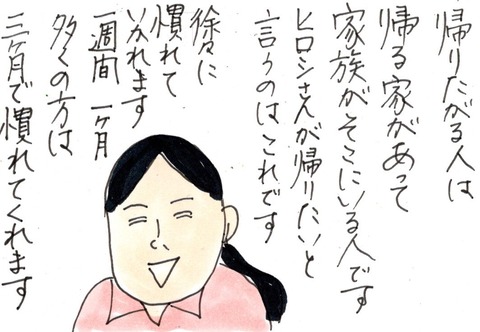 帰りたがる人は
帰る家があって
家族がそこにいる人です
ヒロシさんが帰りたいと
言うのはこれです
徐々に
慣れて
いかれます
一週間 一ヶ月
多くの方は
三ヶ月で慣れてくれます